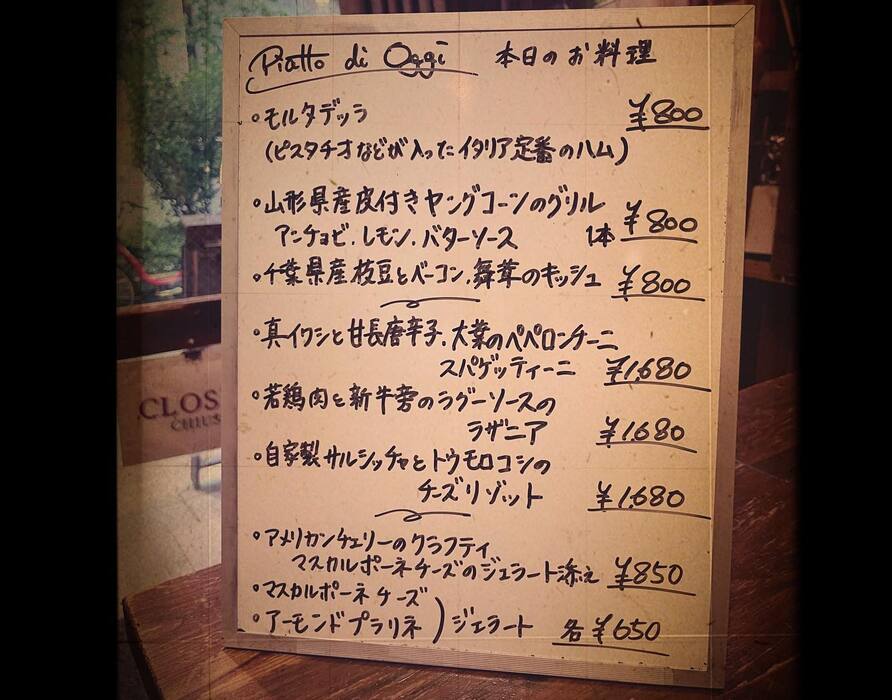 Piatto di Oggi 本日のお料理
・モルタデッラ ¥800
(ピスタチオなどが入ったイタリア定番のハム)
・山形県産皮付きヤングコーンのグリル
アンチョビ.レモン.バターソース 1本 ¥800
・千葉県産枝豆とベーコン.舞茸のキッシュ ¥800
・真イワシと甘長唐辛子.大葉のペペロンチーニ
スパゲッティーニ ¥1,680
・若鶏肉と新牛旁のラグーソースの
ラザニア ¥1,680
・自家製サルシッチャとトウモロコシの
チーズリゾット ¥1,680
・アメリカンチェリーのクラフティ
マスカルポーネチーズのジェラート添え ¥850
・マスカルポーネチーズ
・アーモンドプラリネ ) ジェラート 各¥650
CLOS
CHIUS